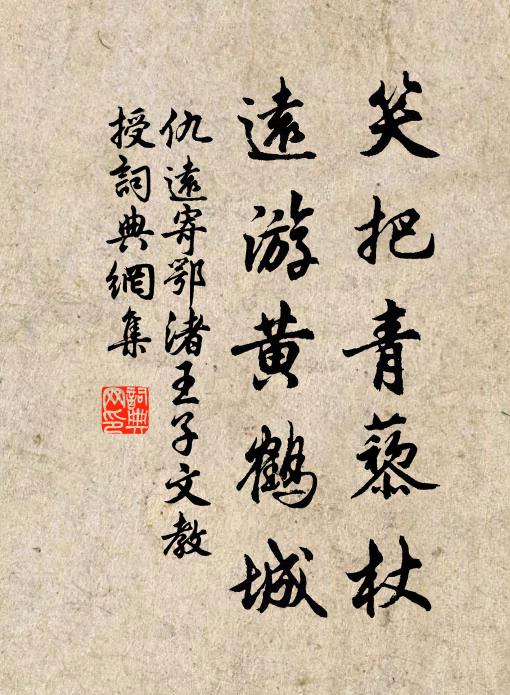 笑把青藜杖
遠游黃鶴城
仇遠寄鄂渚王子文教
授詞典網集
詞典
网印